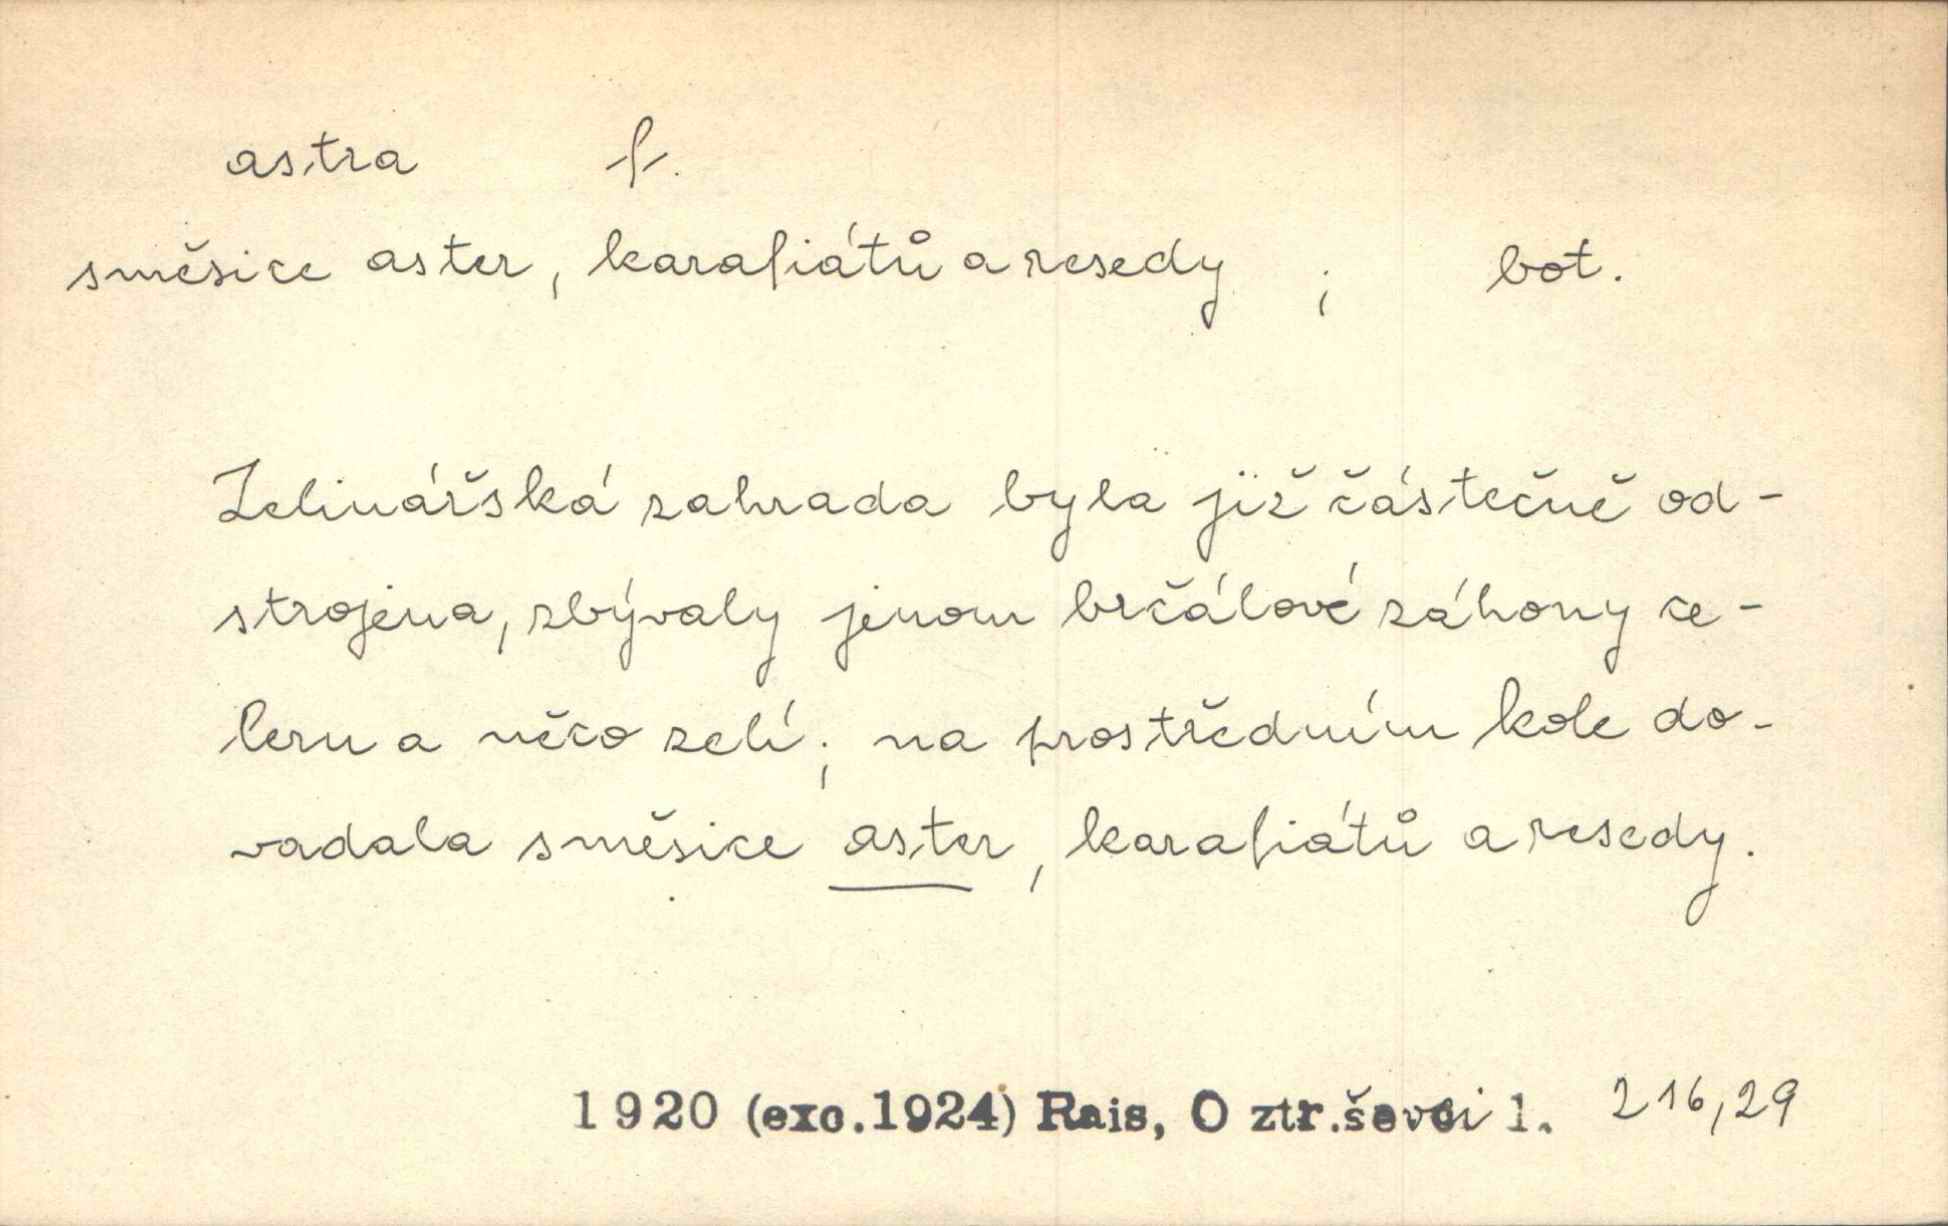 astra f.
směsice aster, karafiátů a resedy ; bot.
Zelinářská zahrada byla již částečně od-
strojena, zbývaly jenom brčálové záhony ce-
leru a něco zelí; na prostředním kole do-
vadala směsice aster, karafiátů a resedy.
1920 (exc.1924) Rais, O ztr.ševci 1. 216,29